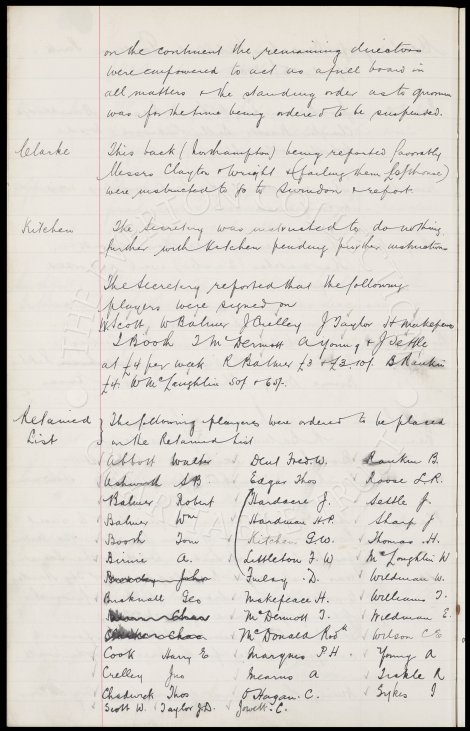 on the continent the remaining directors
were empowered to act as a full board in
all matters & the standing order as to quorum
was for the time being ordered to be suspended.
Clarke This back (Northampton) being reported favorably
Messrs Clayton & Wright & (failing them
were instructed to go to Swindon & report.
Kitchen The Secretary was instructed to do nothing
further with Kitchen pending further instructions
The Secretary reported that the following
players were signed on
W Scott, W Balmer J Crelley J Taylor H Makepeace
T Booth T McDermott A Young & J Settle
at £4 per week R Balmer £3 & £3.10/. B Rankin
£4. W McLoughlin 50/ & 60/.
Retained The following players were ordered to be placed
List on the Retained List
Abbott Walter Dent Fred. W. Rankin B.
Ashworth S B. Edgar Thos Roose L.R.
Balmer Robert Hardacre J. Settle J.
Balmer Wm Hardman H.P. Sharp J
Booth Tom Kitchen G.W. Thomas H.
Birnie A. Littleton F. W McLoughlin W
John D. Wildman W.
Bucknall Geo Makepeace H. Williams T.
Chas McDermott T. Wildman E.
Chas McDonald Rodk Wilson C E
Cook Harry E Marquis P H. Young A
Crelley Jno Mearns A R
Chadwick Thos O'Hagan. C. Sykes J
Scott W. Taylor J.D. Jowett. C.
THE EVERTON COLLECTION